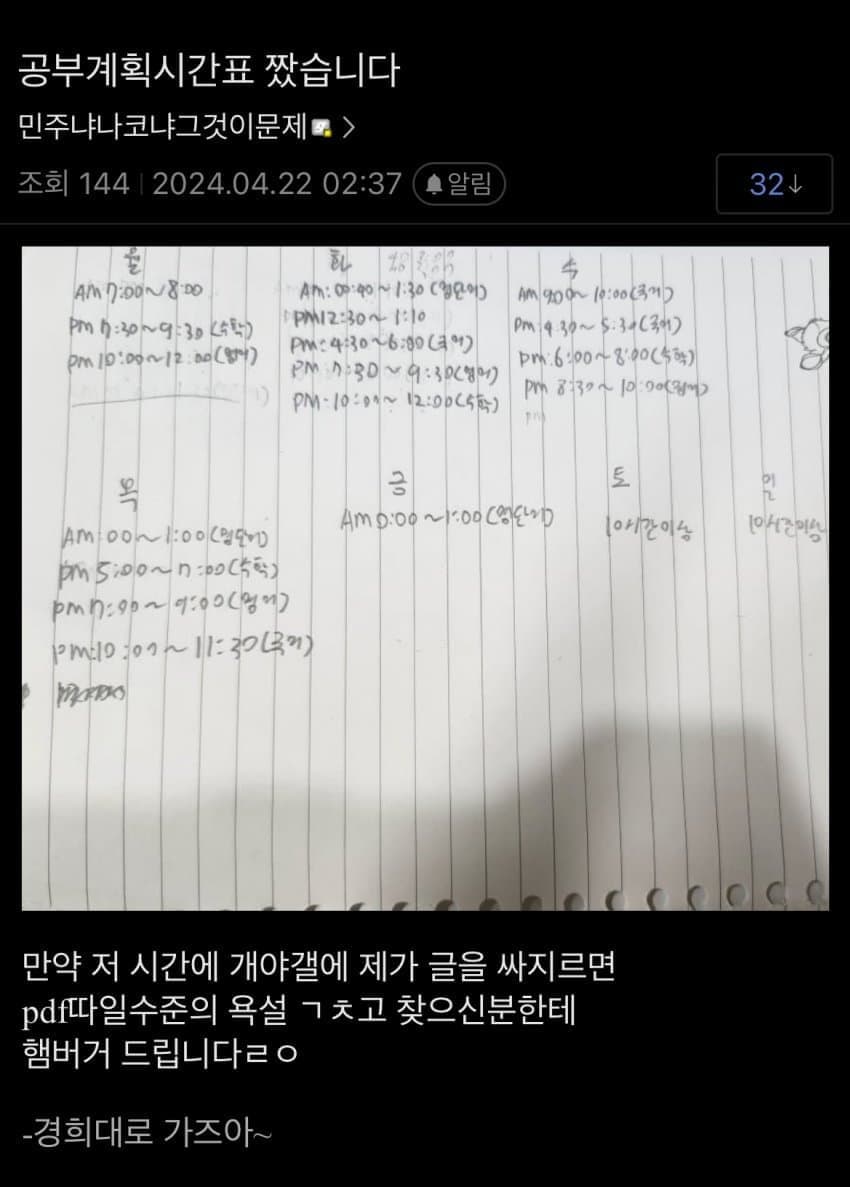 공부계획시간표 짰습니다
민주냐나코냐그것이문제
조회 144 2024.04.22 02:37 알림
32↓
월
AM 7:00~8:00
pm 7:30~9:30(수학)
pm 10:00~12:00(영어)
화
Am:00:40~1:30(영단어)
pm12:30~1:10
pm:4:30~6:00(국어)
pm 7:30~9:30(영어)
PM:10:00~12:00(수학)
수
Am 9:00~10:00(국어)
pm:4:30~5:30(국어)
pm:6:00~8:00(수학)
pm 8:30~10:00(영어)
pm
목
Am:00~1:00(영단어)
pm 5:00~7:00(수학)
pm 7:00~9:00(영어)
pm:10:00~11:30(국어)
금
Am 0:00~1:00(영단어)
토
10시간이상
일
10시간이상
만약 저 시간에 개야갤에 제가 글을 싸지르면
pdf따일수준의 욕설 ㄱㅊ고 찾으신분한테
햄버거 드립니다ㄹㅇ
-경희대로 가즈아~